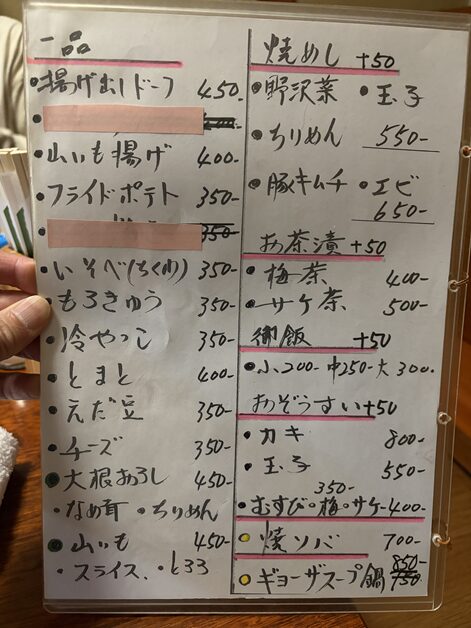 一品
・揚げ出しドーフ 450.
・山いも揚げ 400-
・フライドポテト 350-
350-
・いそべ(ちくわ) 350-
・もろきゅう 350-
・冷やっこ 350-
・とまと 400-
・えだ豆 350-
・チーズ 350-
・大根おろし 450-
・なめ茸 ・ちりめん
・山いも 450-
・スライス、・とろろ
焼めし +50
・野沢菜 ・玉子
・ちりめん 550-
・豚キムチ ・エビ
650-
お茶漬 +50
・梅茶 400-
・サケ茶 500-
御飯 +50
・小200- 中250- 大300.
おぞうすい+50
・カキ 800-
・玉子 550-
350-
・むすび・梅・サケ-400-
・焼ソバ 700-
850-
・ギョーザスープ鍋 750-